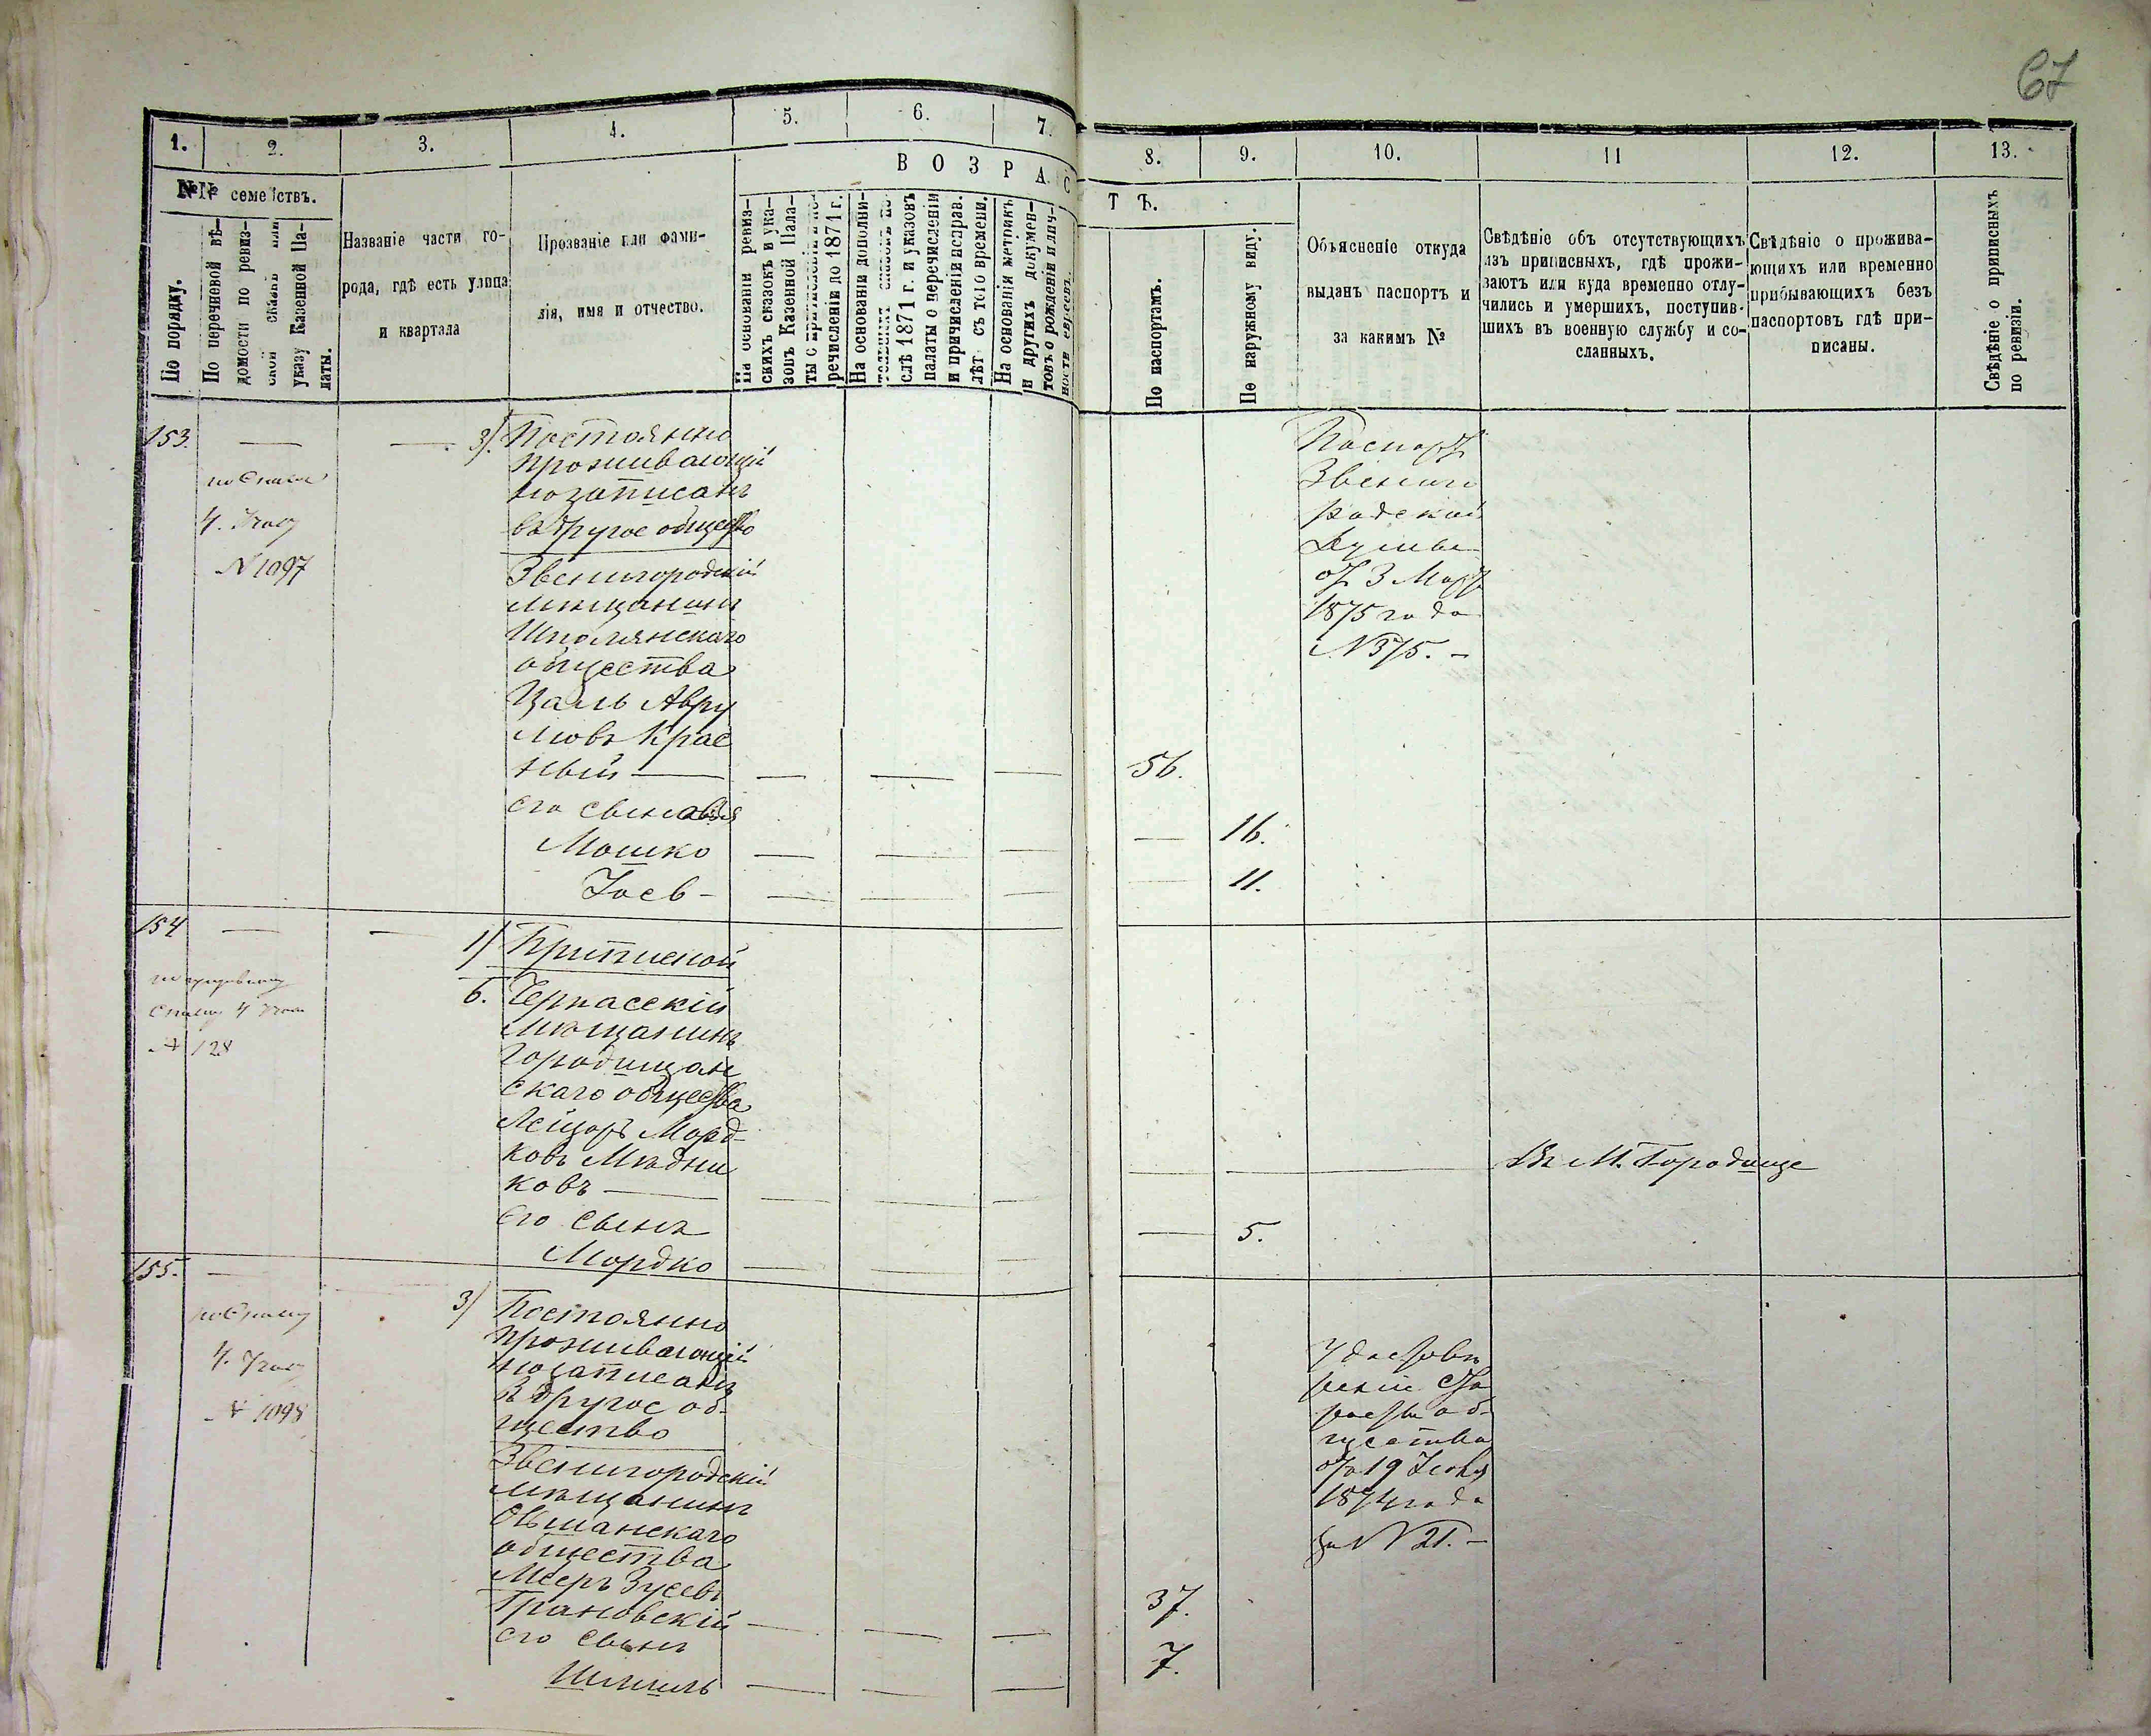 67
1.
2.
3.
4.
5.
6.
7.
8.
9.
10.
11
12.
13.
№№ семействъ.
По порядку.
По перечневой вѣ-
домости по ревиз-
ской сказкѣ или
указу Казенной Па-
латы.
Названіе части го-
рода, гдѣ есть улица
и квартала
Прозваніе или фами-
лія, имя и отчество.
ВОЗРАСТЪ.
На основаніи ревиз-
скихъ сказокъ и ука-
зовъ Казенной Пала-
ты о причисленіи и пе-
речисленіи до 1871 г.
На основаніи дополни-
слѣ 1871 г. и указовъ
палаты о перечисленіи
и причисленіи исправ.
лѣт. съ того времени.
На основаніи метрикъ
и другихъ докумен-
товъ о рожденіи и лич-
ности евреевъ.
По паспортамъ.
По наружному виду.
Объясненіе откуда
выданъ паспортъ и
за какимъ №
Свѣдѣніе объ отсутствующихъ
изъ приписныхъ, гдѣ прожи-
ваютъ или куда временно отлу-
чились и умершихъ, поступив-
шихъ въ военную службу и со-
сланныхъ.
Свѣдѣніе о прожива-
ющихъ или временно
прибывающихъ безъ
паспортовъ гдѣ при-
писаны.
Свѣдѣніе о приписныхъ
по ревизіи.
153.
по Списку
4. Участ
N 1097
3/. Постоянно
проживающій
но записанъ
въ другое общество
Звенигородскій
мѣщанинъ
Шполянскаго
общества
Цаль Авру
мовъ Крас
ный — 56.
его сыновья
Мошко — 16.
Іосъ - 11.
Паспортъ
Звениго
родской
Думы
отъ 3 Марта
1875 года
N 375. -
154
Списку 4 Участ
N 128
1/ Приписной
б. Черкасскій
Мѣщанинъ
Городищен
скаго общества
Лейзоръ Морд-
ковъ Мѣдни
ковъ —
Въ М. Городище
его сынъ
Мордко — 5.
155.
по Списку
4. Участ
N 1098
3/ Постоянно
проживающій
но записанъ
въ другое об-
щество
Звенигородскій
мѣщанинъ
Ольшанскаго
общества
Мееръ Зусевъ
Грановскій — 37.
его сынъ
Шмиль — 7.
Удостовѣ
реніе Ста
росты об-
щества
отъ 19 Іюня
1874 года
за N 21. -